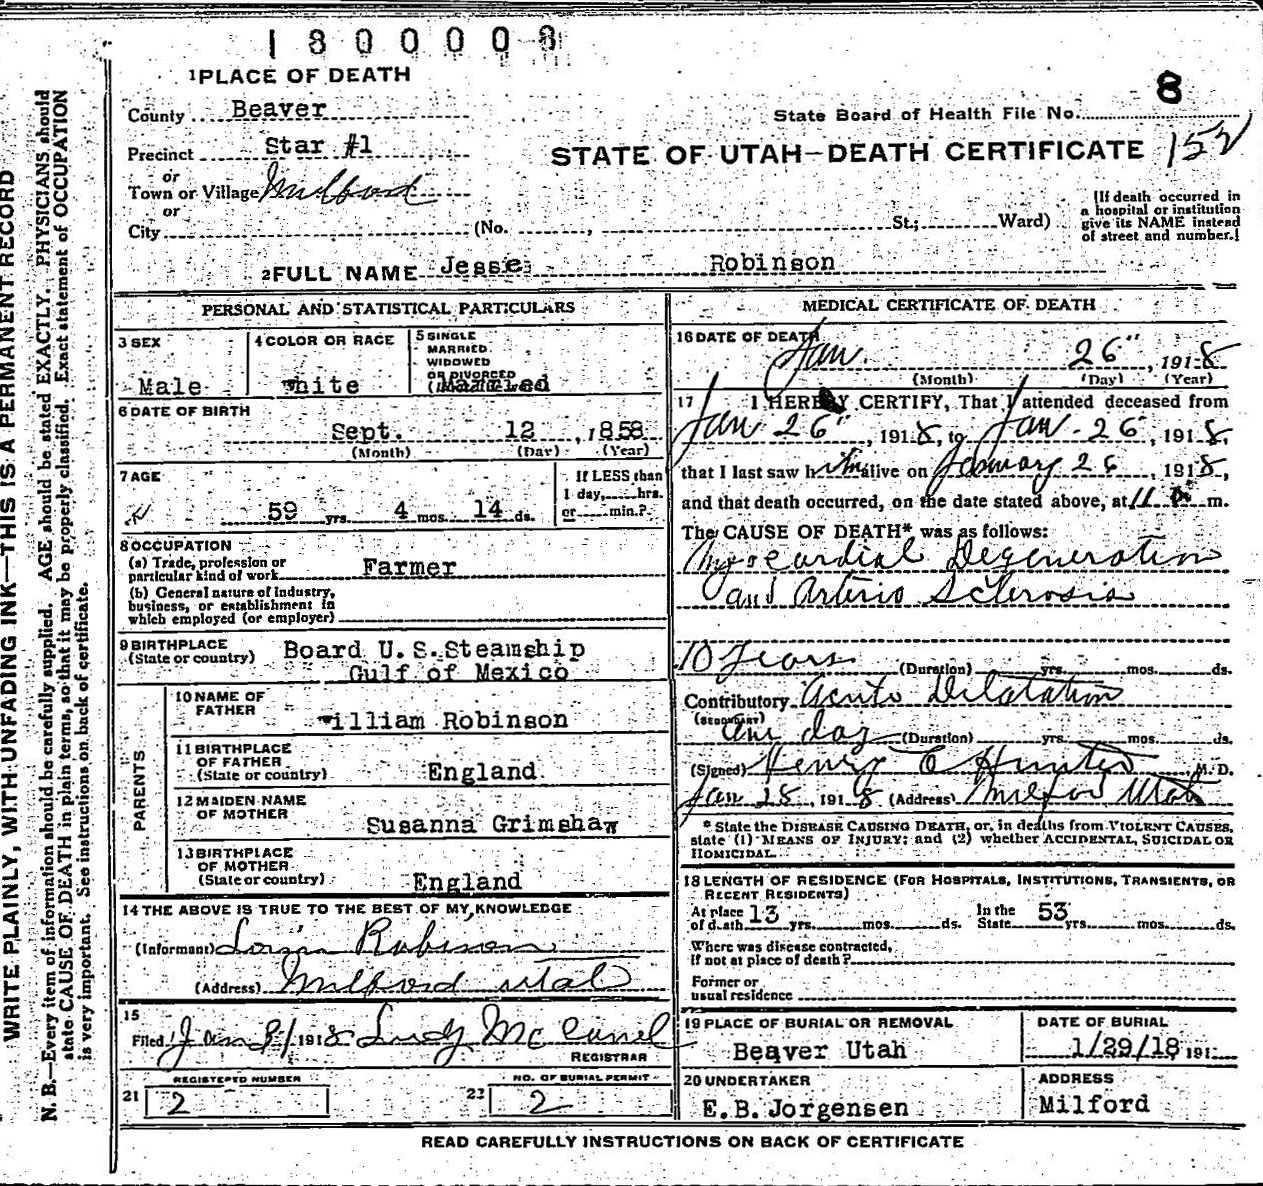 1800008
1 PLACE OF DEATH
8
County Beaver
State Board of Health File No.
Precinct Star #1
STATE OF UTAH—DEATH CERTIFICATE 152
or
Town or Village Milford
or
City (No. , St.; Ward)
(If death occurred in a hospital or institution give its NAME instead of street and number.)
2 FULL NAME Jesse Robinson
PERSONAL AND STATISTICAL PARTICULARS
3 SEX
Male
4 COLOR OR RACE
White
5 SINGLE
MARRIED
WIDOWED
OR DIVORCED
Married
6 DATE OF BIRTH
Sept. 12, 1858
(Month) (Day) (Year)
7 AGE
59 yrs. 4 mos. 14 ds.
If LESS than
1 day, hrs.
or min.?
8 OCCUPATION
(a) Trade, profession or
particular kind of work Farmer
(b) General nature of industry,
business, or establishment in
which employed (or employer)
9 BIRTHPLACE
(State or country) Board U. S. Steamship
Gulf of Mexico
PARENTS
10 NAME OF
FATHER
William Robinson
11 BIRTHPLACE
OF FATHER
(State or country) England
12 MAIDEN NAME
OF MOTHER
Susanna Grimshaw
13 BIRTHPLACE
OF MOTHER
(State or country) England
14 THE ABOVE IS TRUE TO THE BEST OF MY KNOWLEDGE
(Informant) Robinson
(Address) Milford Utah
15
Filed Jan 1918
REGISTRAR
REGISTERED NUMBER
21 2
NO. OF BURIAL PERMIT
22 2
MEDICAL CERTIFICATE OF DEATH
16 DATE OF DEATH
Jan. 26", 1918
(Month) (Day) (Year)
17 I HEREBY CERTIFY, That I attended deceased from
Jan 26", 1918, to Jan. 26, 1918,
that I last saw him alive on January 26, 1918,
and that death occurred, on the date stated above, at 11 m.
The CAUSE OF DEATH* was as follows:
Myocardial Degeneration
and Arterio Sclerosis
10 Years (Duration) yrs. mos. ds.
Contributory Acute Dilatation
(SECONDARY)
One day (Duration) yrs. mos. ds.
(Signed) Henry C Hunter M. D.
Jan 28, 1918 (Address) Milford Utah
* State the DISEASE CAUSING DEATH, or, in deaths from VIOLENT CAUSES,
state (1) MEANS OF INJURY; and (2) whether ACCIDENTAL, SUICIDAL OR
HOMICIDAL.
18 LENGTH OF RESIDENCE (FOR HOSPITALS, INSTITUTIONS, TRANSIENTS, OR
RECENT RESIDENTS)
At place
of death 13 yrs. mos. ds. In the
State 53 yrs. mos. ds.
Where was disease contracted,
if not at place of death?
Former or
usual residence
19 PLACE OF BURIAL OR REMOVAL
Beaver Utah
DATE OF BURIAL
1/29/18 191
20 UNDERTAKER
E. B. Jorgensen
ADDRESS
Milford
READ CAREFULLY INSTRUCTIONS ON BACK OF CERTIFICATE
WRITE PLAINLY, WITH UNFADING INK—THIS IS A PERMANENT RECORD
N. B.—Every item of information should be carefully supplied. AGE should be stated EXACTLY. PHYSICIANS should
state CAUSE OF DEATH in plain terms, so that it may be properly classified. Exact statement of OCCUPATION
is very important. See instructions on back of certificate.